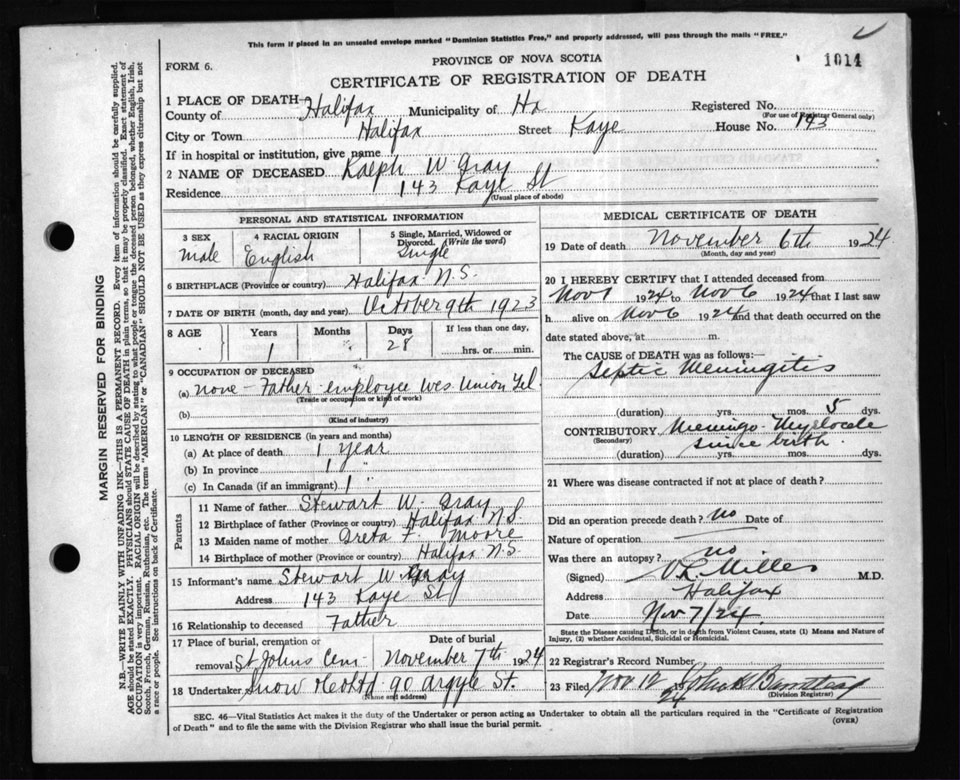 This form if placed in an unsealed envelope marked "Dominion Statistics Free," and properly addressed, will pass through the mails "FREE."
FORM 6.
PROVINCE OF NOVA SCOTIA
1014
CERTIFICATE OF REGISTRATION OF DEATH
1 PLACE OF DEATH—
County of Halifax Municipality of Hx Registered No.
(For use of Registrar General only)
City or Town Halifax Street Kaye House No. 143
If in hospital or institution, give name
2 NAME OF DECEASED Ralph W. Gray
Residence 143 Kaye St
(Usual place of abode)
PERSONAL AND STATISTICAL INFORMATION
3 SEX male
4 RACIAL ORIGIN English
5 Single, Married, Widowed or Divorced. (Write the word) Single
6 BIRTHPLACE (Province or country) Halifax N.S.
7 DATE OF BIRTH (month, day and year) October 9th 1923
8 AGE Years Months Days If less than one day,
1 28 hrs. or min.
9 OCCUPATION OF DECEASED
(a) none - Father employee Wes Union Tel
(Trade or occupation or kind of work)
(b)
(Kind of industry)
10 LENGTH OF RESIDENCE (in years and months)
(a) At place of death 1 year
(b) In province 1 "
(c) In Canada (if an immigrant) 1 "
Parents
11 Name of father Stewart W. Gray
12 Birthplace of father (Province or country) Halifax N.S.
13 Maiden name of mother Greta F. Moore
14 Birthplace of mother (Province or country) Halifax N.S.
15 Informant's name Stewart W. Gray
Address 143 Kaye St
16 Relationship to deceased Father
17 Place of burial, cremation or removal St Johns Cem Date of burial November 7th 1924
18 Undertaker Snow & Co Ltd 90 Argyle St.
(Name and address)
MEDICAL CERTIFICATE OF DEATH
19 Date of death November 6th 1924
(Month, day and year)
20 I HEREBY CERTIFY that I attended deceased from
Nov 1 1924 to Nov 6 1924 that I last saw
h alive on Nov 6 1924 and that death occurred on the
date stated above, at m.
The CAUSE OF DEATH was as follows:
Septic Meningitis
(duration) yrs. mos. 5 dys.
CONTRIBUTORY Meningo-Myelocele
(Secondary) since birth
(duration) yrs. mos. dys.
21 Where was disease contracted if not at place of death?
Did an operation precede death? no Date of
Nature of operation
Was there an autopsy? no
(Signed) Miller M.D.
Address Halifax
Date Nov 7/24.
State the Disease causing Death, or in death from Violent Causes, state (1) Means and Nature of Injury, (2) whether Accidental, Suicidal or Homicidal.
22 Registrar's Record Number
23 Filed Nov 12 24 John
(Division Registrar)
SEC. 46—Vital Statistics Act makes it the duty of the Undertaker or person acting as Undertaker to obtain all the particulars required in the "Certificate of Registration
of Death" and to file the same with the Division Registrar who shall issue the burial permit.
(OVER)
MARGIN RESERVED FOR BINDING
N.B.—WRITE PLAINLY WITH UNFADING INK—THIS IS A PERMANENT RECORD. Every item of information should be carefully supplied.
AGE should be stated EXACTLY. PHYSICIANS should STATE CAUSE OF DEATH in plain terms, so that it may be properly classified. Exact statement of
OCCUPATION is very important. RACIAL ORIGIN will be described by stating to what people or tongue the deceased person belonged, whether English, Irish,
Scotch, French, German, Russian, Ruthenian, etc. The terms "AMERICAN" or "CANADIAN" SHOULD NOT BE USED as they express citizenship but not
a race or people. See instructions on back of Certificate.